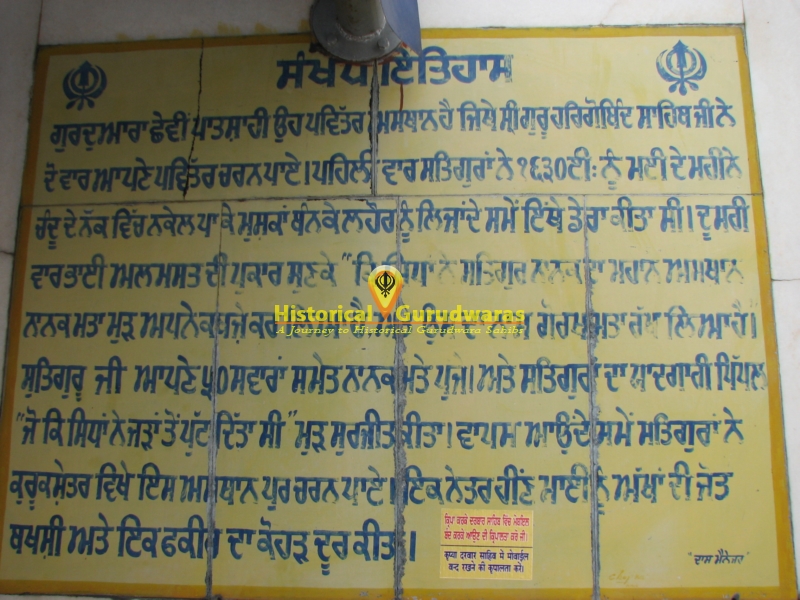 ਸੰਖੇਪ ਇਤਿਹਾਸ
ਗੁਰਦੁਆਰਾ ਛੇਵੀਂ ਪਾਤਸ਼ਾਹੀ ਉਹ ਪਵਿੱਤਰ ਅਸਥਾਨ ਹੈ ਜਿਥੇ ਸ੍ਰੀ ਗੁਰੂ ਹਰਿਗੋਬਿੰਦ ਸਾਹਿਬ ਜੀ ਨੇ
ਦੋ ਵਾਰ ਆਪਣੇ ਪਵਿੱਤਰ ਚਰਨ ਪਾਏ। ਪਹਿਲੀ ਵਾਰ ਸਤਿਗੁਰਾਂ ਨੇ ੧੬੩੦ਈ: ਨੂੰ ਮਈ ਦੇ ਮਹੀਨੇ
ਚੰਦੂ ਦੇ ਨੱਕ ਵਿੱਚ ਨਕੇਲ ਪਾ ਕੇ ਮੁਸ਼ਕਾਂ ਬੰਨਕੇ ਲਾਹੌਰ ਨੂੰ ਲਿਜਾਂਦੇ ਸਮੇਂ ਇੱਥੇ ਡੇਰਾ ਕੀਤਾ ਸੀ। ਦੂਸਰੀ
ਵਾਰ ਭਾਈ ਅਲਮਸਤ ਦੀ ਪੁਕਾਰ ਸੁਣਕੇ "ਕਿ ਸਿਧਾਂ ਨੇ ਸਤਿਗੁਰ ਨਾਨਕ ਦਾ ਮਹਾਨ ਅਸਥਾਨ
ਨਾਨਕ ਮਤਾ ਮੁੜ ਅਪਨੇ ਕਬਜੇ ਕਰ ਗੋਰਖਮਤਾ ਰੱਖ ਲਿਆ ਹੈ।
Historical Gurudwaras
A Journey to Historical Gurudwara Sahibs
ਸਤਿਗੁਰੂ ਜੀ ਆਪਣੇ ੫੦ ਸਵਾਰਾਂ ਸਮੇਤ ਨਾਨਕ ਮਤੇ ਪੁਜੇ। ਅਤੇ ਸਤਿਗੁਰਾਂ ਦਾ ਯਾਦਗਾਰੀ ਪਿੱਪਲ
"ਜੋ ਕਿ ਸਿਧਾਂ ਨੇ ਜੜਾਂ ਤੋਂ ਪੁੱਟ ਦਿੱਤਾ ਸੀ" ਮੁੜ ਸੁਰਜੀਤ ਕੀਤਾ। ਵਾਪਸ ਆਉਂਦੇ ਸਮੇਂ ਸਤਿਗੁਰਾਂ ਨੇ
ਕੁਰੂਕਸ਼ੇਤਰ ਵਿਖੇ ਇਸ ਅਸਥਾਨ ਪੁਰ ਚਰਨ ਪਾਏ। ਇਕ ਨੇਤਰਹੀਣ ਮਾਈ ਨੂੰ ਅੱਖਾਂ ਦੀ ਜੋਤ
ਬਖਸ਼ੀ ਅਤੇ ਇਕ ਫਕੀਰ ਦਾ ਕੋਹੜ ਦੂਰ ਕੀਤਾ।
ਕ੍ਰਿਪਾ ਕਰਕੇ ਦਰਬਾਰ ਸਾਹਿਬ ਵਿੱਚ ਮੋਬਾਇਲ
ਬੰਦ ਕਰਕੇ ਆਉਣ ਦੀ ਕ੍ਰਿਪਾਲਤਾ ਕਰੋ ਜੀ।
कृप्या दरबार साहिब में मोबाईल
बन्द रखने की कृपालता करें।
"ਦਾਸ ਮੈਨੇਜਰ"